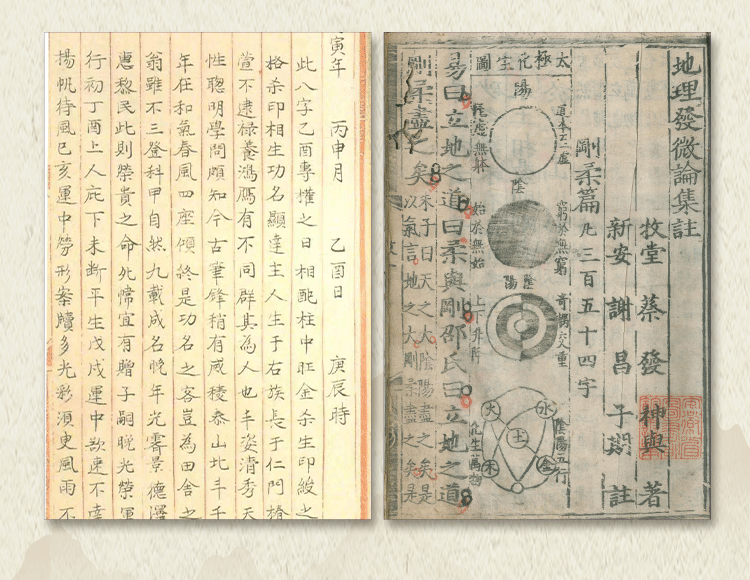 地理發微論集註
牧堂 蔡發 神與 著
新安 謝昌 子期 註
剛柔篇 凡三百五十四字
太極化生圖
陽
道本于一虛
陰
窮於無窮
始於無始
陰陽
陰陽五行
水
火
土
木
金
化生萬物
易曰立地之道曰柔與剛邵氏曰立地之道
剛柔盡之矣
朱子曰天之大陰陽盡之矣是
以氣言地之大剛柔盡之矣是
寅年 丙申月 乙酉日 庚辰時
此八字乙酉專權之日相配柱中旺金杀生印綬之
格杀印相生功名顯達主人生于右族長于仁門椿
萱不逮祿養鴻鴈有不同群其為人也丰姿清秀天
性聰明學問頗知今古筆鋒稍有威稜泰山北斗千
年在和氣春風四座傾終是功名之客豈為田舍之
翁雖不三登科甲自然九載成名晚年光霽景德澤
惠黎民此則榮貴之命 宜有贈子嗣晚光榮運
行初丁酉上人庇下未斷平生戊戌運中欲速不達
揚帆待風己亥運中勞形案牘多光彩須臾風雨不